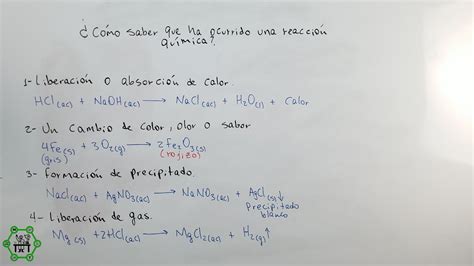 ¿Cómo saber que ha ocurrido una reacción
química?
1- Liberación o absorción de calor.
HCl(ac) + NaOH(ac) → NaCl(ac) + H2O(l) + Calor
2- Un Cambio de color, olor o sabor
4Fe(s) + 3O2(g) → 2Fe2O3(s)
(gris) (rojizo)
3- Formación de Precipitado.
NaCl(ac) + AgNO3(ac) → NaNO3(ac) + AgCl(s)↓
Precipitado
blanco
4- Liberación de gas.
Mg(s) + 2HCl(ac) → MgCl2(ac) + H2(g)↑